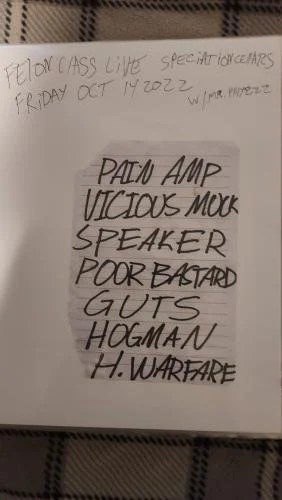 FELON CLASS LIVE SPECIATION CELLARS
FRIDAY OCT 14 2022
W/ MR.
PAIN AMP
VICIOUS MOCK
SPEAKER
POOR BASTARD
GUTS
HOGMAN
H. WARFARE